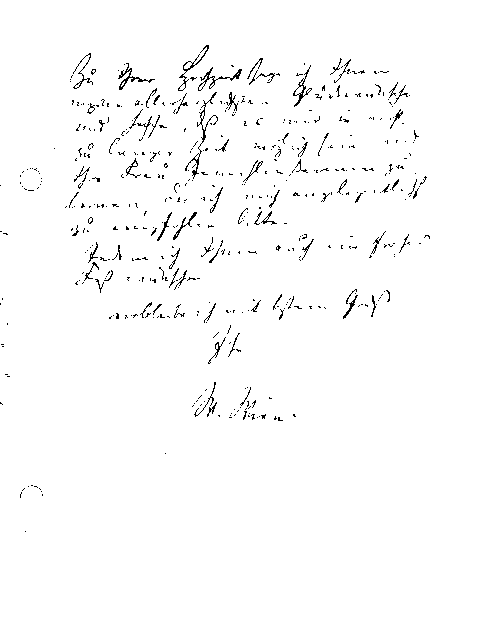 Zu Ihrer Hochzeit sage ich Ihnen
meine allerherzlichsten Glückwünsche
und hoffe, daß es mir in nicht
zu langer Zeit möglich sein wird
Ihre Frau Gemahlin kennen zu
lernen, der ich mich angelegentlichst
zu empfehlen bitte.
Indem ich Ihnen auch ein frohes
Fest wünsche
verbleibe ich mit bestem Gruß
Ihr